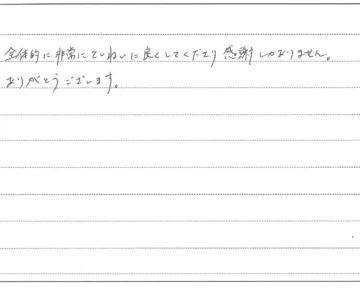 全体的に非常にていねいに良くしてくださり感謝しかありません。
ありがとうございます。